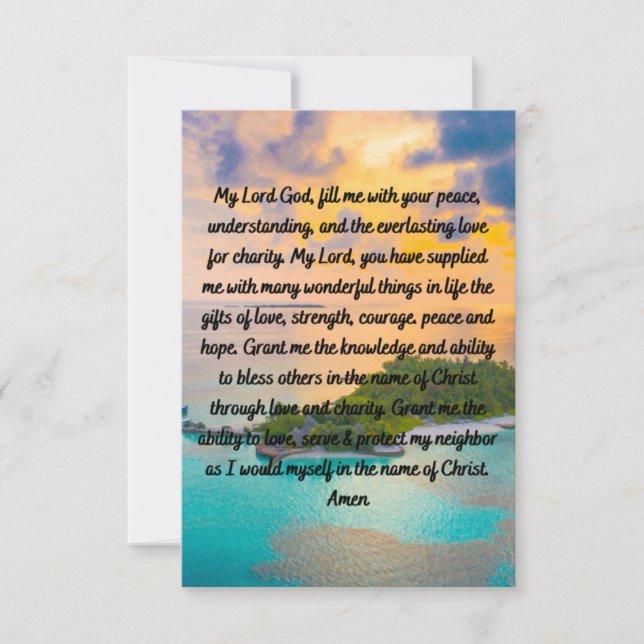 My Lord God, fill me with your peace,
understanding, and the everlasting love
for charity. My Lord, you have supplied
me with many wonderful things in life the
gifts of love, strength, courage. peace and
hope. Grant me the knowledge and ability
to bless others in the name of Christ
through love and charity. Grant me the
ability to love, serve & protect my neighbor
as I would myself in the name of Christ.
Amen